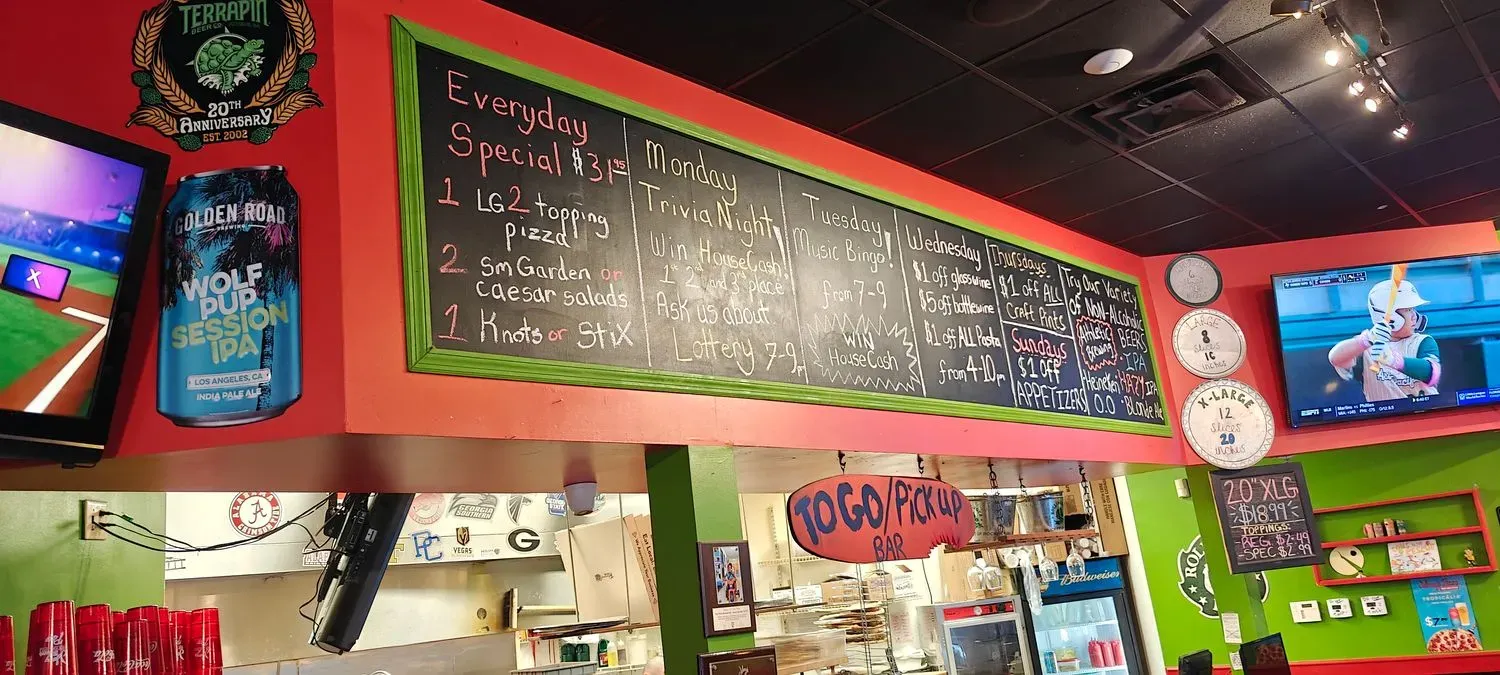 TERRAPIN
BEER CO.
20TH
ANNIVERSARY
EST. 2002
GOLDEN ROAD
BREWING
WOLF
PUP
SESSION
IPA
LOS ANGELES, CA
INDIA PALE ALE
X
Everyday
Special $31.95
1 LG 2 topping
pizza
2 Sm Garden or
caesar salads
1 Knots or Stix
Monday
Trivia Night,
Win HouseCash!
1st 2nd and 3rd place
Ask us about
Lottery 7-9pm
Tuesday
Music Bingo!
from 7-9
WIN
HouseCash
Wednesday
$1 off glasswine
$5 off bottlewine
$1 off ALL Pasta
from 4-10pm
Thursdays
$1 off ALL
Craft Pints
Sundays
$1 OFF
APPETIZERS
Try Our Variety
OF NON-Alcoholic
BEERS
Athletic
Brewing
IPA
HAZY IPA
Blonde Ale
Heineken
0.0
LARGE
8
slices
16
inches
X-LARGE
12
slices
20
inches
ESPN
TO GO/Pick up
BAR
20" XLG
$18.99
TOPPINGS:
REG. $2.49
SPEC $2.99
Budweiser
GEORGIA
SOUTHERN
VEGAS
G
A
PC
Coca-Cola
$7